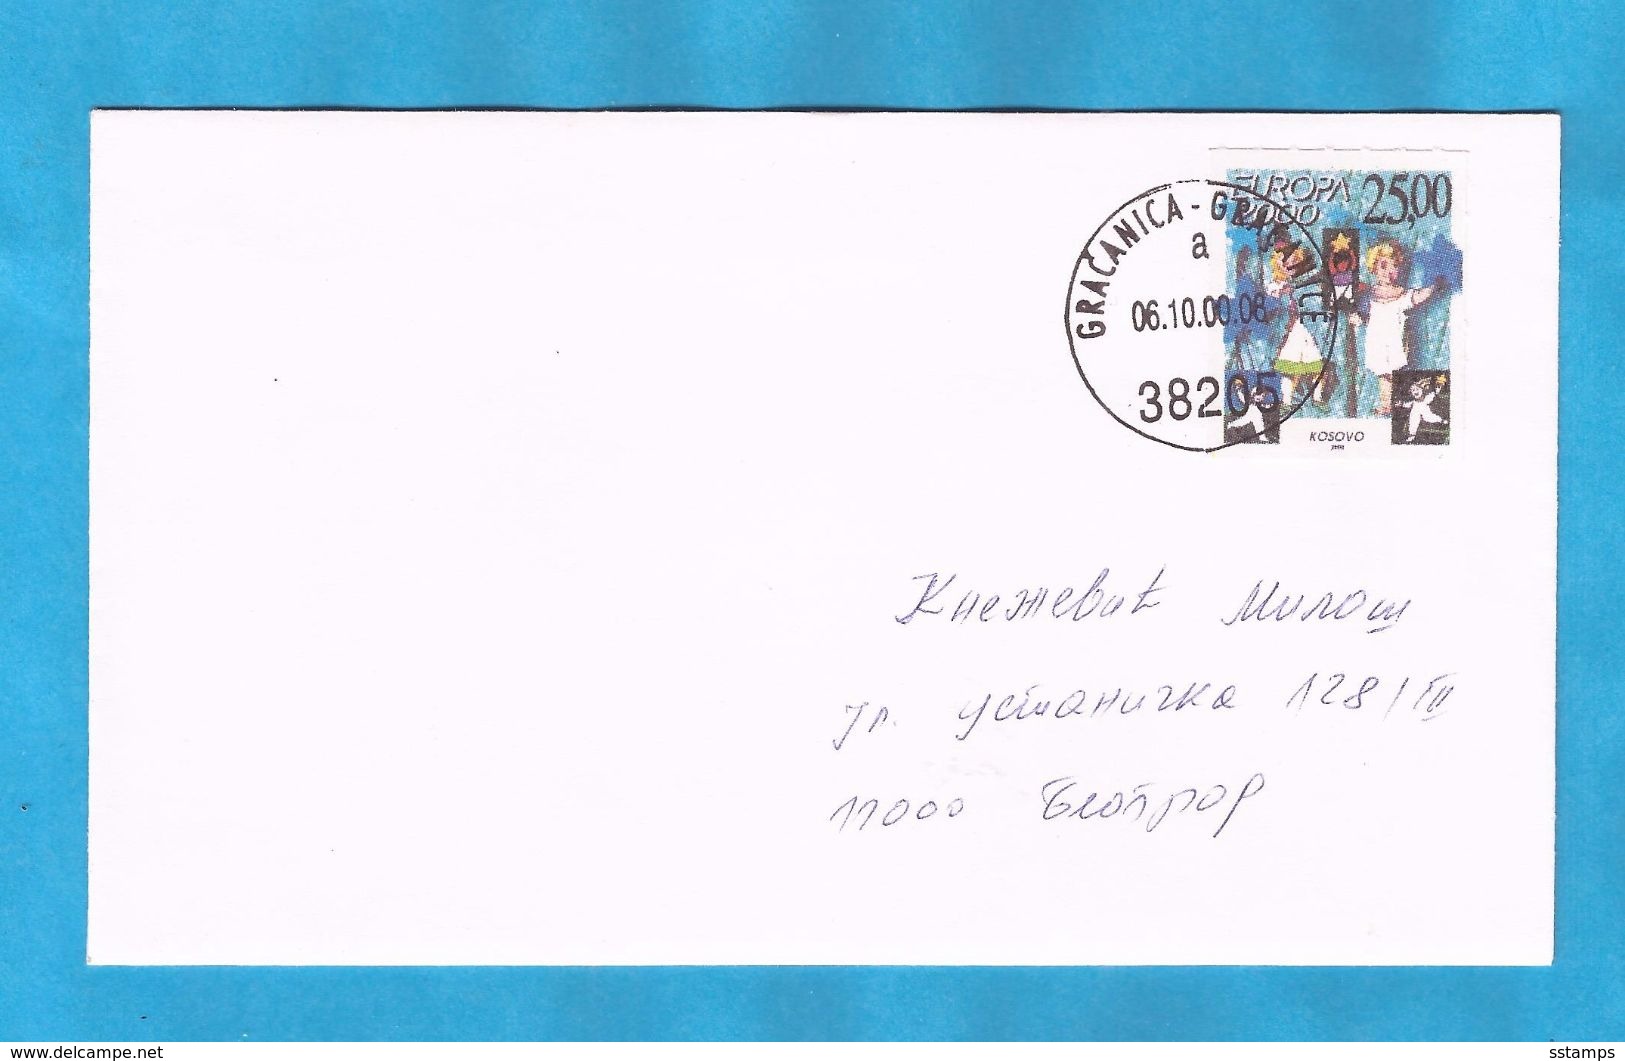 EUROPA 25,00
2000
GRAČANICA - GRAÇANICË
a
06.10.00.08
38205
KOSOVO
Кнежевић Милош
Ул. Устаничка 128/III
11000 Београд
www.delcampe.net
sstamps